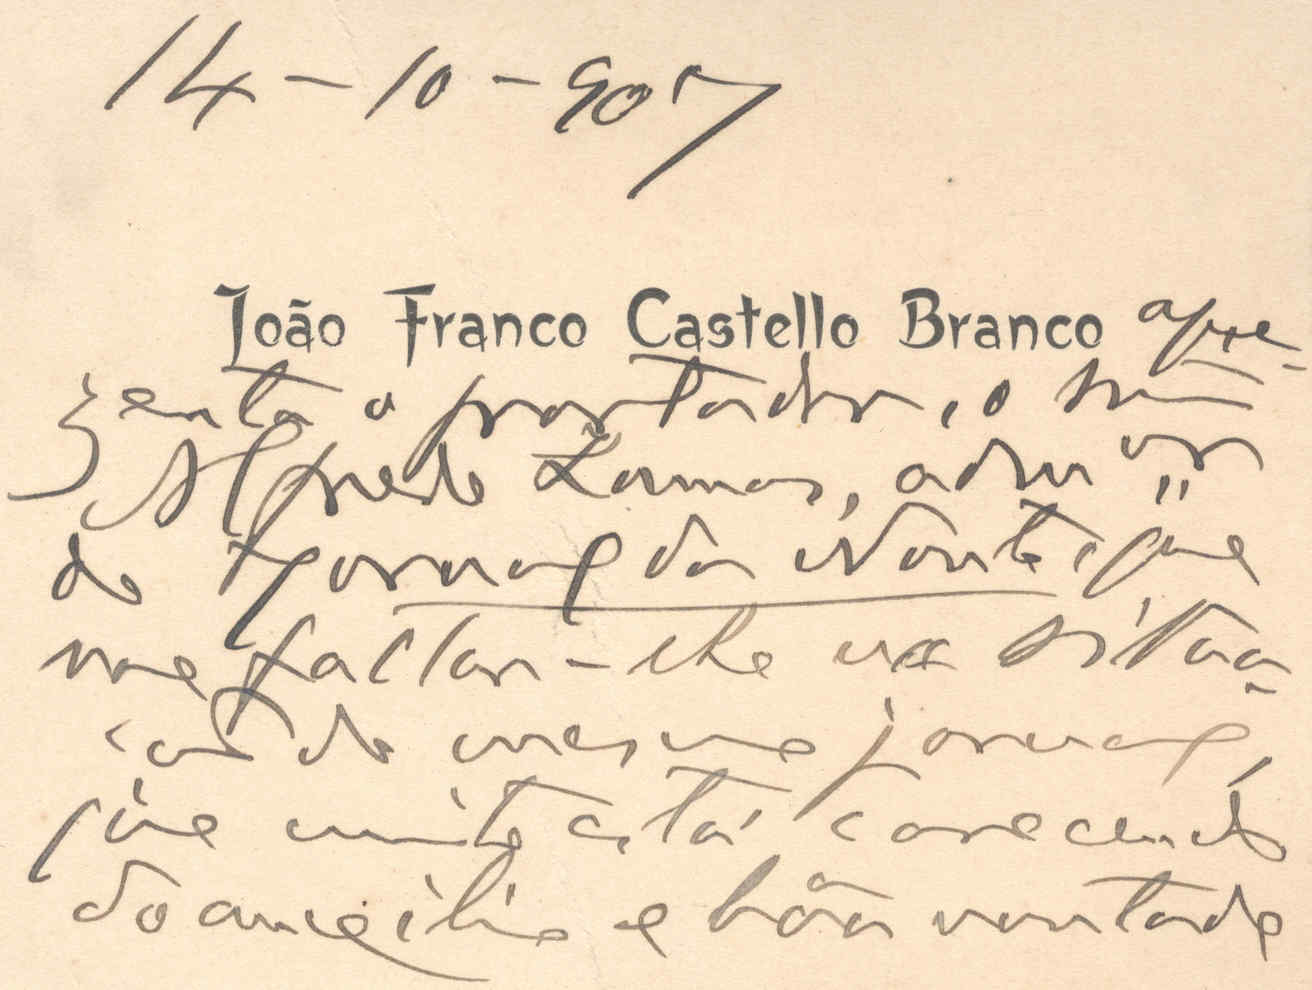 14-10-907
João Franco Castello Branco apre-
zenta o portador, o snr
Alfredo Lamas, admor
do Jornal da Noite, que
vae fallar-lhe na situa-
ção do mesmo jornal,
que muito está carecendo
do auxilio e bôa vontade